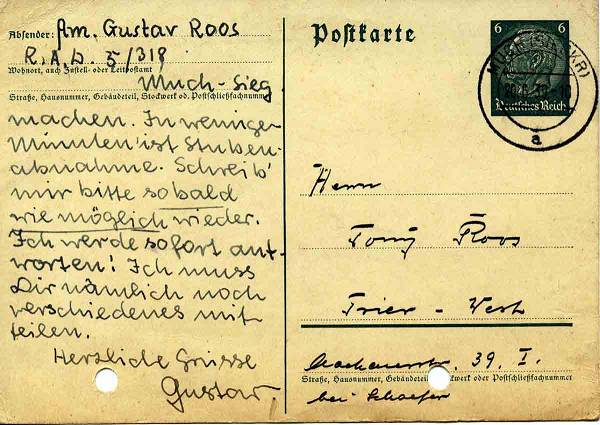 Absender: Am. Gustav Roos
R.A.D. 5/318
Wohnort, auch Zustell- oder Leitpostamt
Much-Sieg.
Straße, Hausnummer, Gebäudeteil, Stockwerk od. Postschließfachnummer
machen. In wenigen
Minuten ist Stuben-
abnahme. Schreib'
mir bitte sobald
wie möglich wieder.
Ich werde sofort ant-
worten! Ich muss
Dir nämlich noch
verschiedenes mit
teilen.
Herzliche Grüsse
Gustav.
Postkarte
6 6
Deutsches Reich
a
Herrn
Tony Roos
Trier-West
39. I.
Straße, Hausnummer, Gebäudeteil, Stockwerk oder Postschließfachnummer
bei Schaefer